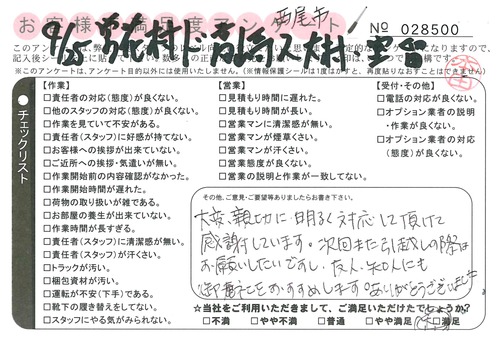 お客様満足度アンケート
西尾市
No 028500
【作業】
□責任者の対応(態度)が良くない。
□他のスタッフの対応(態度)が良くない。
□作業を見ていて不安がある。
□責任者(スタッフ)に好感が持てない。
□お客様への挨拶が出来ていない。
□ご近所への挨拶・気遣いが無い。
□作業開始前の内容確認がなかった。
□作業開始時間が遅れた。
□荷物の取り扱いが雑である。
□お部屋の養生が出来ていない。
□作業時間が長すぎる。
□責任者(スタッフ)に清潔感が無い。
□責任者(スタッフ)が汗くさい。
□トラックが汚い。
□梱包資材が汚い。
□運転が不安(下手)である。
□靴下の履き替えをしてない。
□スタッフにやる気がみられない。
【営業】
□見積もり時間に遅れた。
□見積もり時間が長い。
□営業マンに清潔感が無い。
□営業マンが煙草くさい。
□営業マンが汗くさい。
□営業態度が良くない。
□営業の説明と作業が一致してない。
【受付・その他】
□電話の対応が良くない。
□オプション業者の説明
・作業が良くない。
□オプション業者の対応
(態度)が良くない。
チェックリスト
その他、ご意見・ご要望等ありましたらお書き下さい。
大変親切に明るく対応して頂けて
感謝しています。次回また引越しの際は
お願いしたいですし、友人・知人にも
御社をおすすめします。ありがとうございました
☆当社をご利用いただきまして、ご満足いただけたでしょうか?
□不満 □やや不満 □普通 □やや満足 □満足